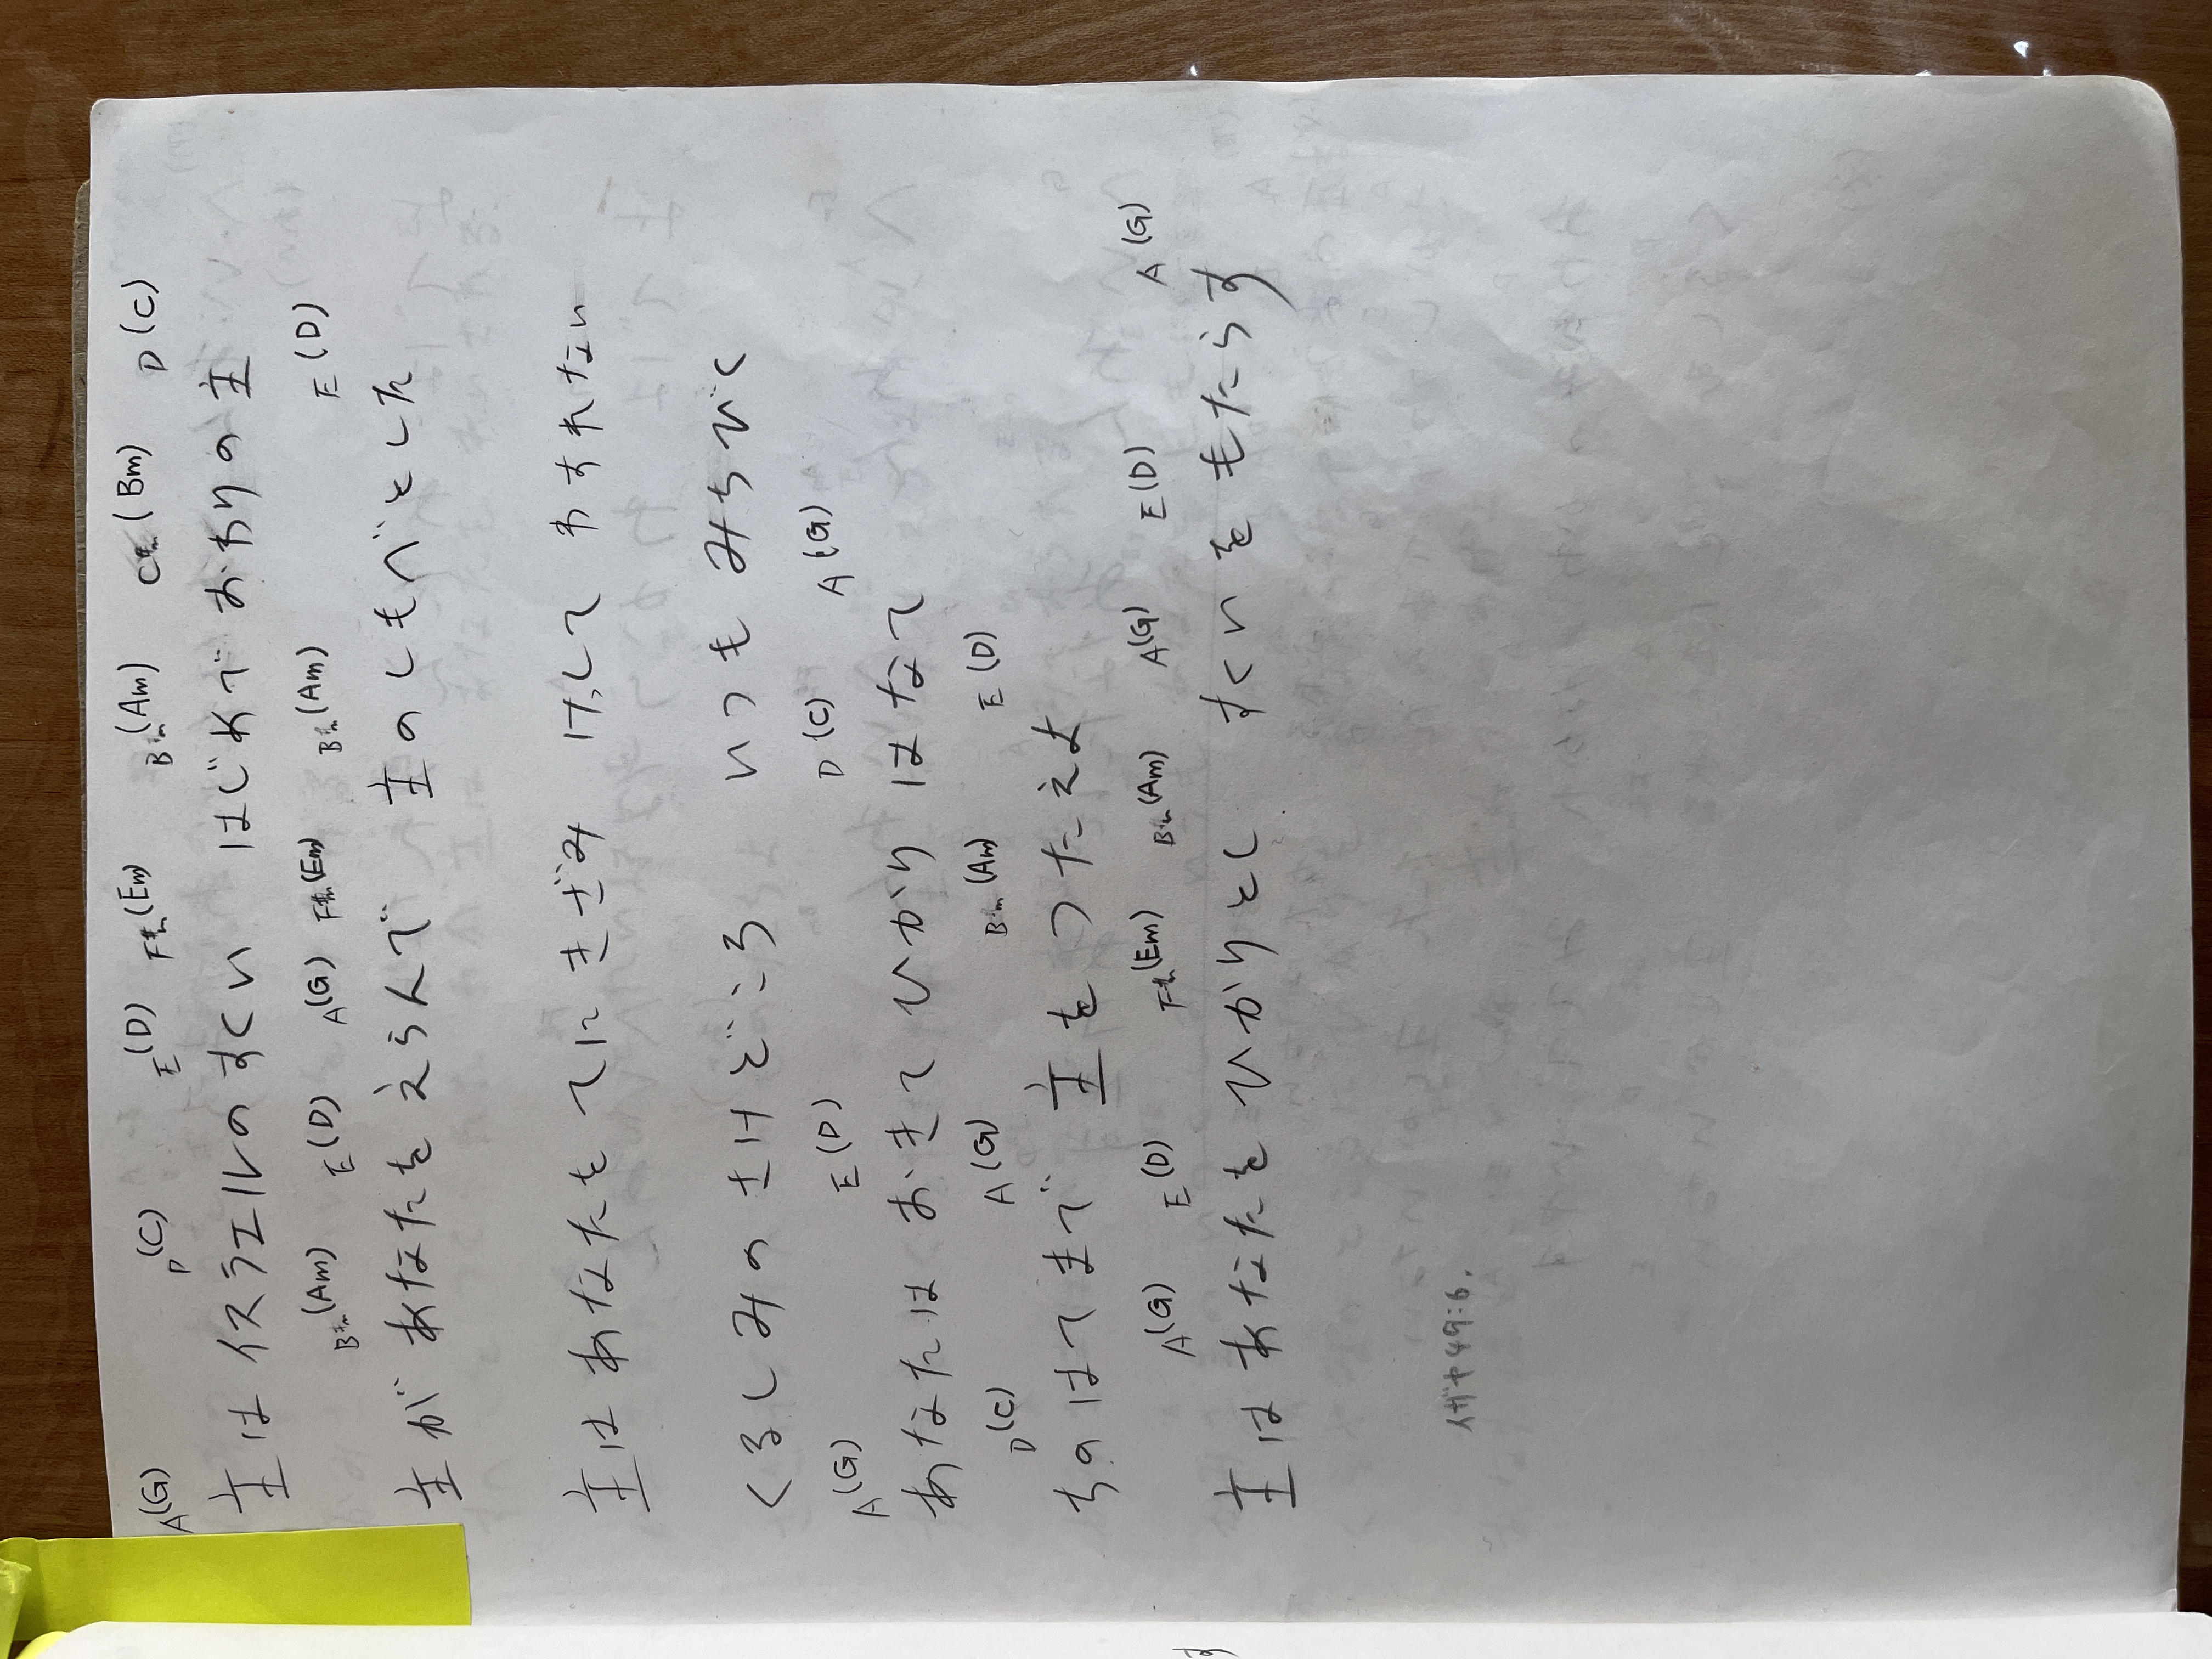 A(G) D(C) E(D) F#m(Em) Bm(Am) C#m(Bm) D(C)
主は イスラエルのすくい はじめで おわりの主
Bm(Am) E(D) A(G) F#m(Em) Bm(Am) E(D)
主が あなたを えらんで 主のしもべとした
主は あなたを てにきざみ けして わすれない
くるしみの さけどころ いつも みちびく
A(G) E(D) D(C) A(G)
あなたは おきて ひかり はなて
D(C) A(G) Bm(Am) E(D)
ちのはてまで 主をつたえよ
A(G) E(D) F#m(Em) Bm(Am) A(G) E(D) A(G)
主は あなたを ひかりとし すくいを もたらす
イザヤ49:6.
す